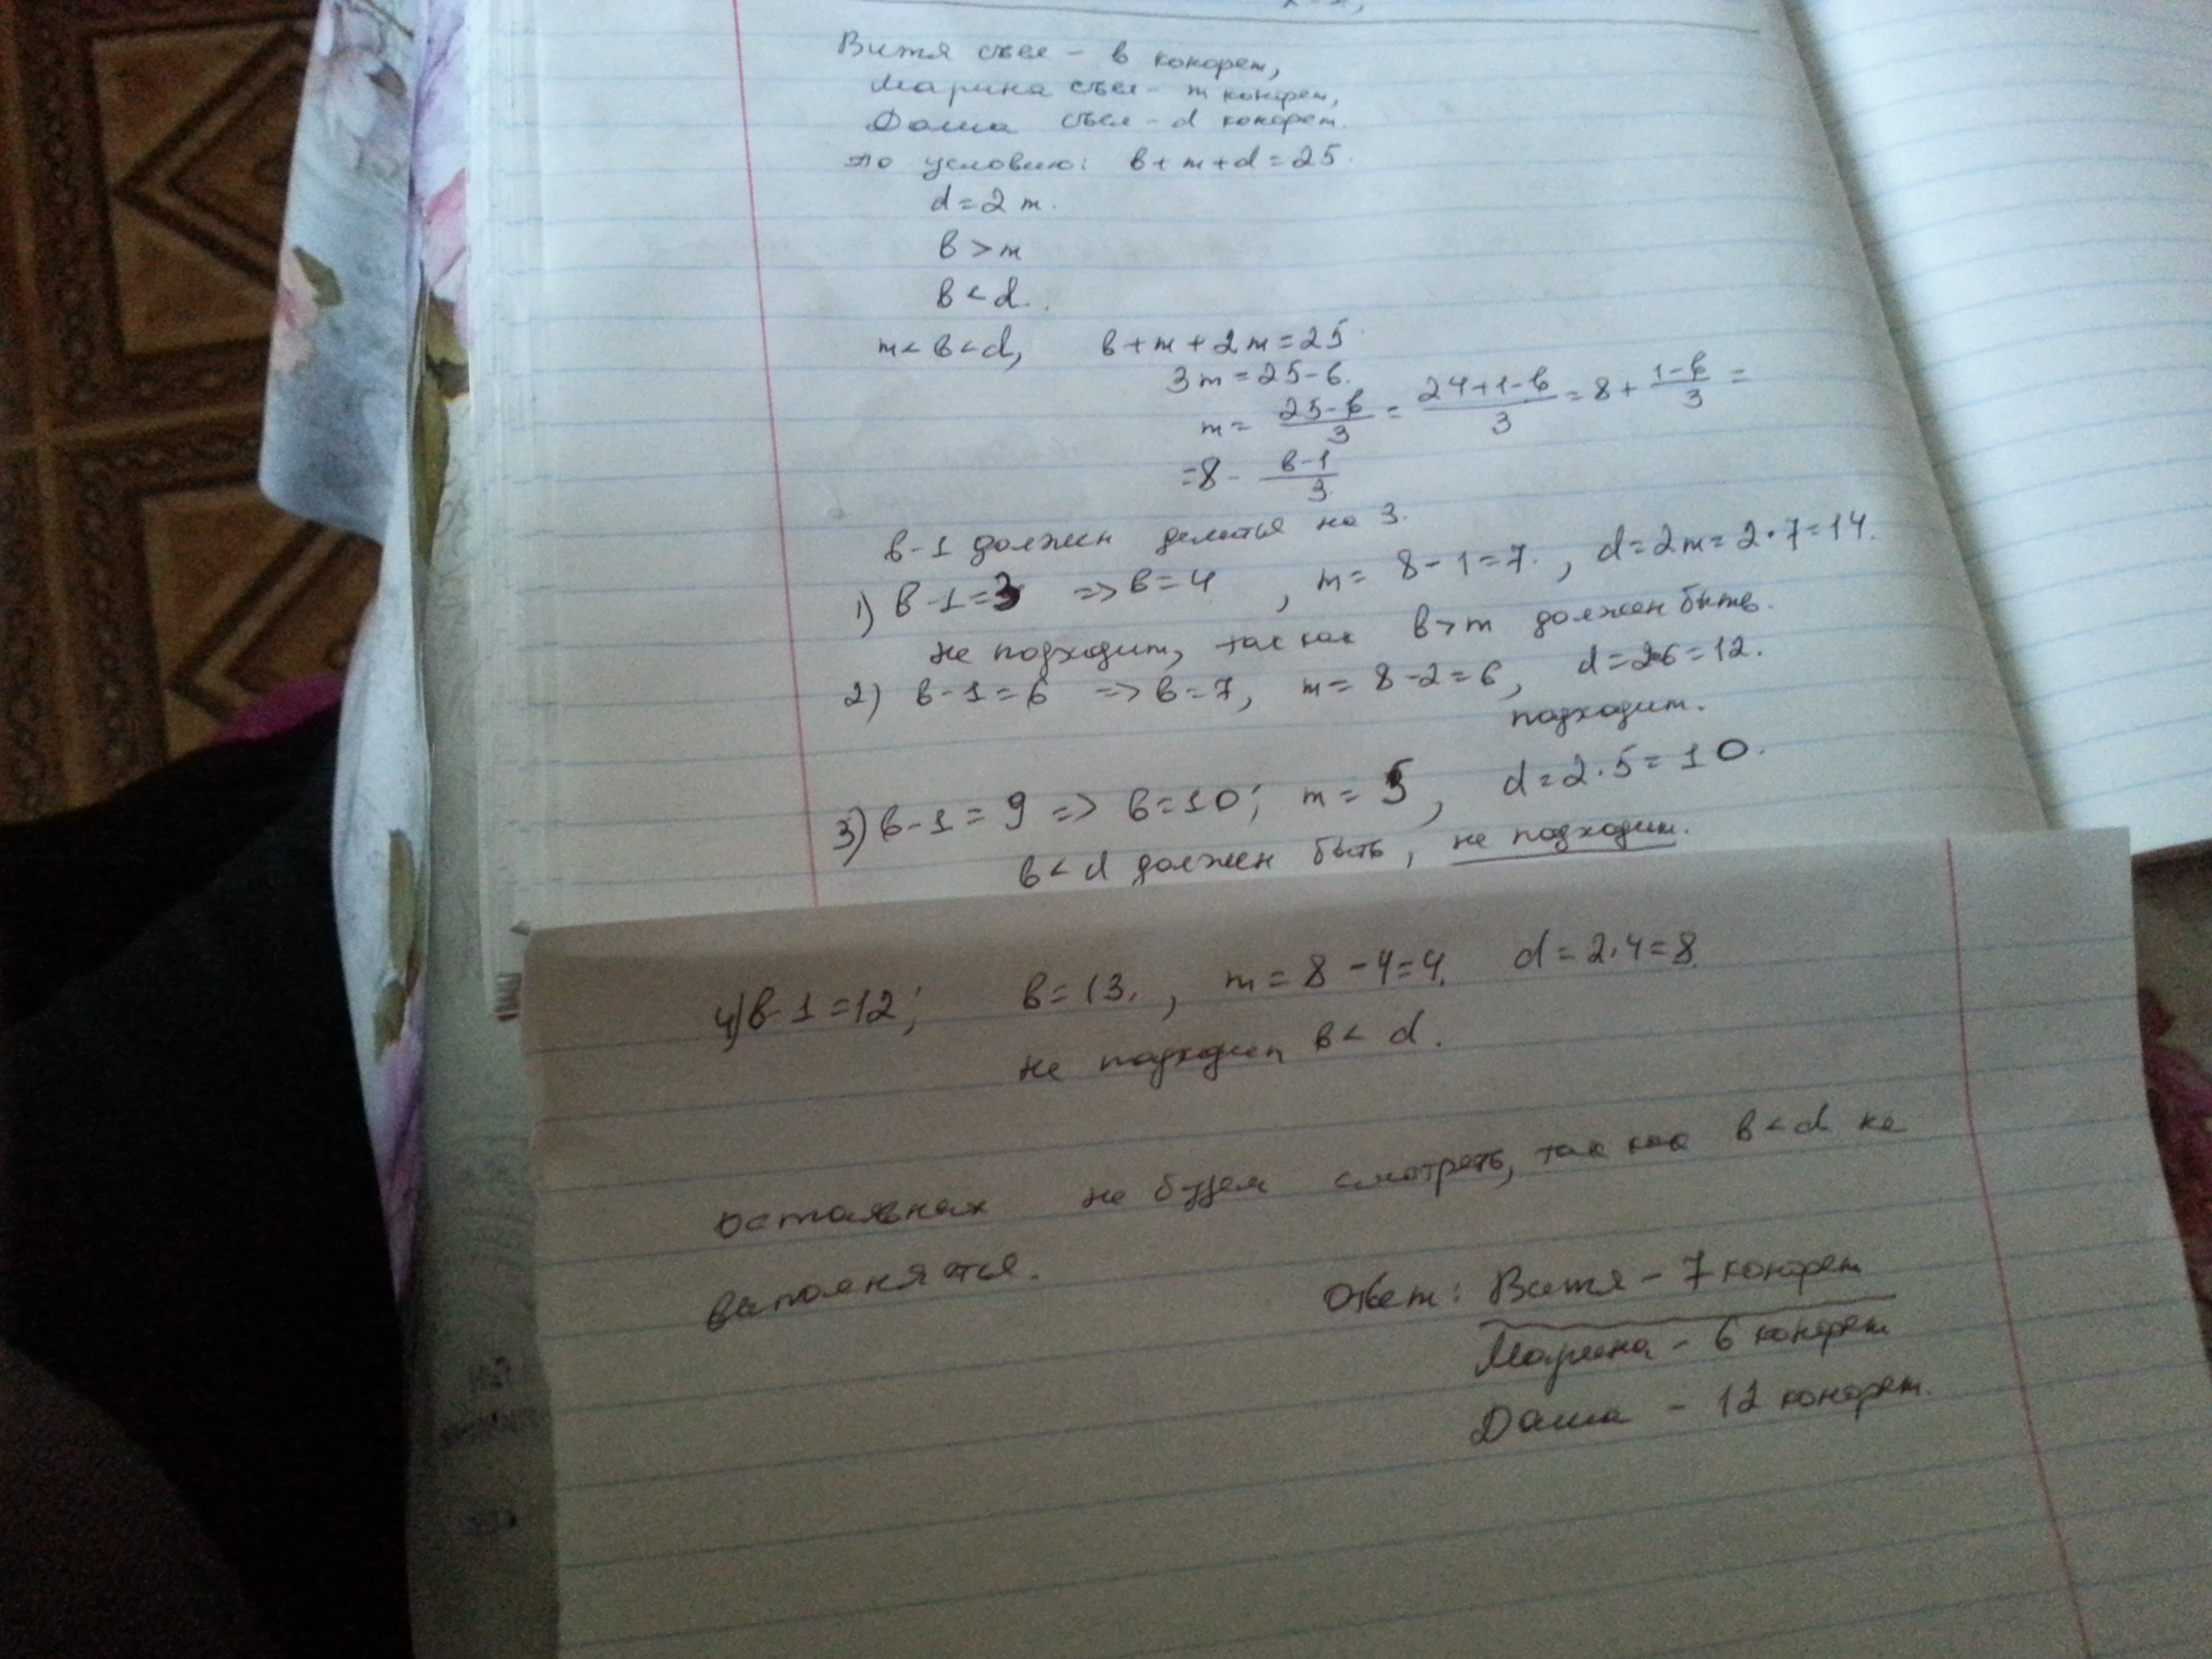 Витя съел - в конфет,
Марина съел - m конфет,
Даша съел - d конфет.
по условию: в + m + d = 25.
d = 2 m.
в > m
в < d.
m < в < d, в + m + 2 m = 25
3 m = 25 - в.
m = \frac{25-в}{3} = \frac{24+1-в}{3} = 8 + \frac{1-в}{3} =
= 8 - \frac{в-1}{3}
в-1 должен делиться на 3.
1) в-1=3 => в=4 , m = 8-1=7. , d=2m=2·7=14.
не подходит, так как в>m должен быть.
2) в-1=6 => в=7, m = 8-2=6, d=2·6=12.
подходит.
3) в-1=9 => в=10; m = 5, d=2·5=10.
в<d должен быть, не подходит.
4) в-1=12; в=13. , m=8-4=4. d=2·4=8.
не подходит в<d.
не будем смотреть, так как в<d не
Ответ: Витя - 7 конфет
Марина - 6 конфет
Даша - 12 конфет.